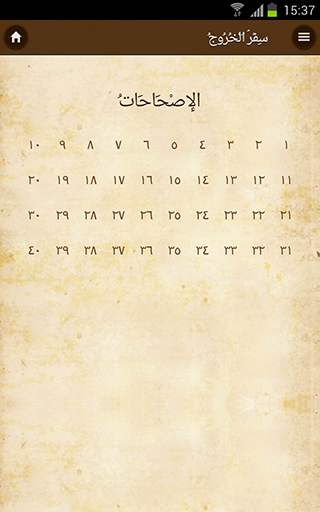 15:37
سِفْرَ ٱلخُرُوجُ
الإصْحَاحَاتُ
١ ٢ ٣ ٤ ٥ ٦ ٧ ٨ ٩ ١٠
١١ ١٢ ١٣ ١٤ ١٥ ١٦ ١٧ ١٨ ١٩ ٢٠
٢١ ٢٢ ٢٣ ٢٤ ٢٥ ٢٦ ٢٧ ٢٨ ٢٩ ٣٠
٣١ ٣٢ ٣٣ ٣٤ ٣٥ ٣٦ ٣٧ ٣٨ ٣٩ ٤٠